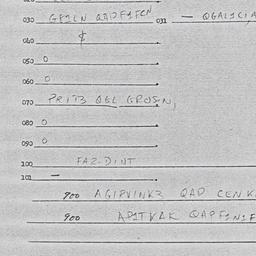 030 GEZLN QADFIFCN 031 — QGALICIA
040 ¢
050 0
060 0
070 PRITZ QEL GROSN,
080 0
090 0
100 FAZ-DINT
101 —
900 AGIPVINKZ QAD CENK
900 APITVAK QAPFINIF